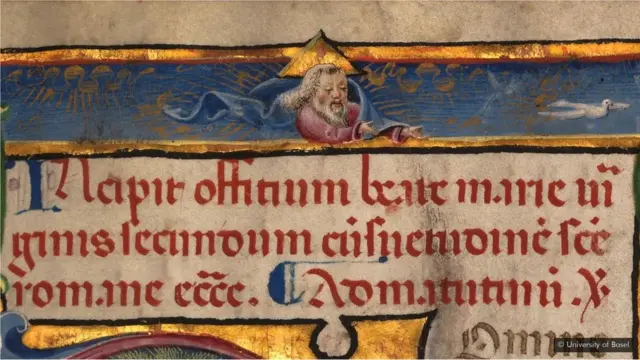 Incipit offitium beate marie vir̄
ginis secundum cōsuetudinē sc̄e
romane ecc̄e. ¶ Ad matutinū. ℣
Domine
© University of Basel